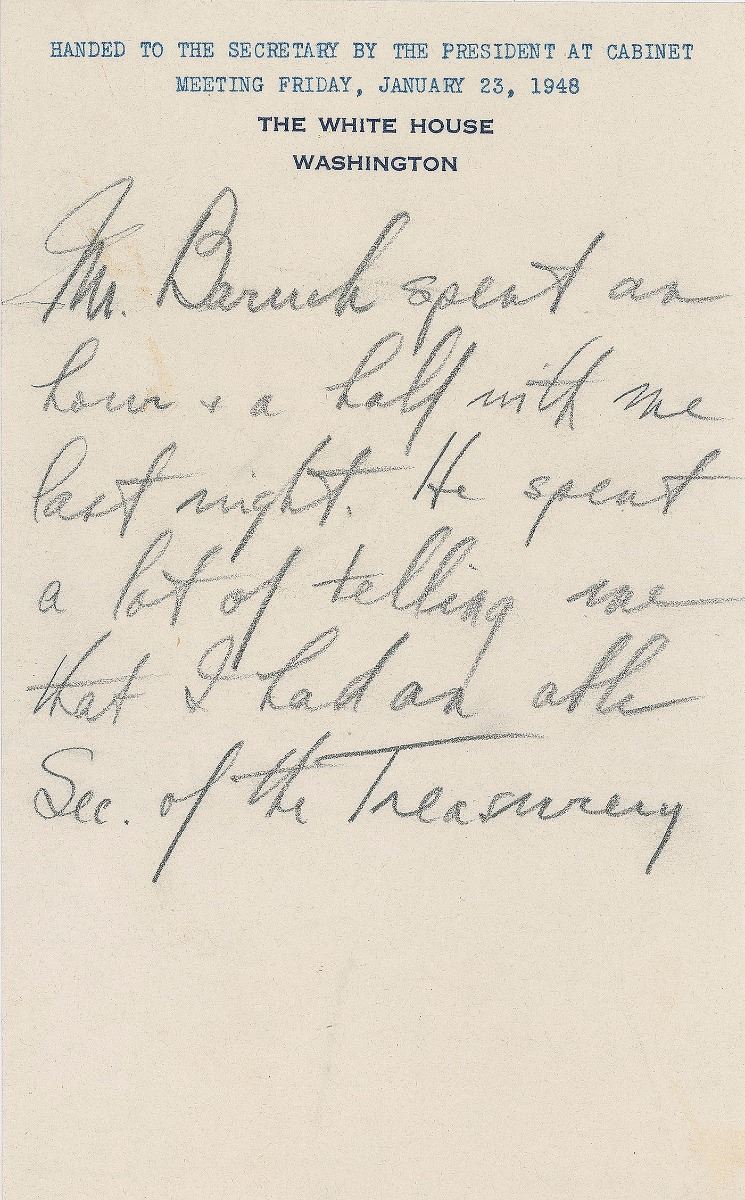 HANDED TO THE SECRETARY BY THE PRESIDENT AT CABINET
MEETING FRIDAY, JANUARY 23, 1948
THE WHITE HOUSE
WASHINGTON
Mr. Baruch spent an
hour & a half with me
last night. He spent
a lot of telling me
that I had an able
Sec. of the Treasurery